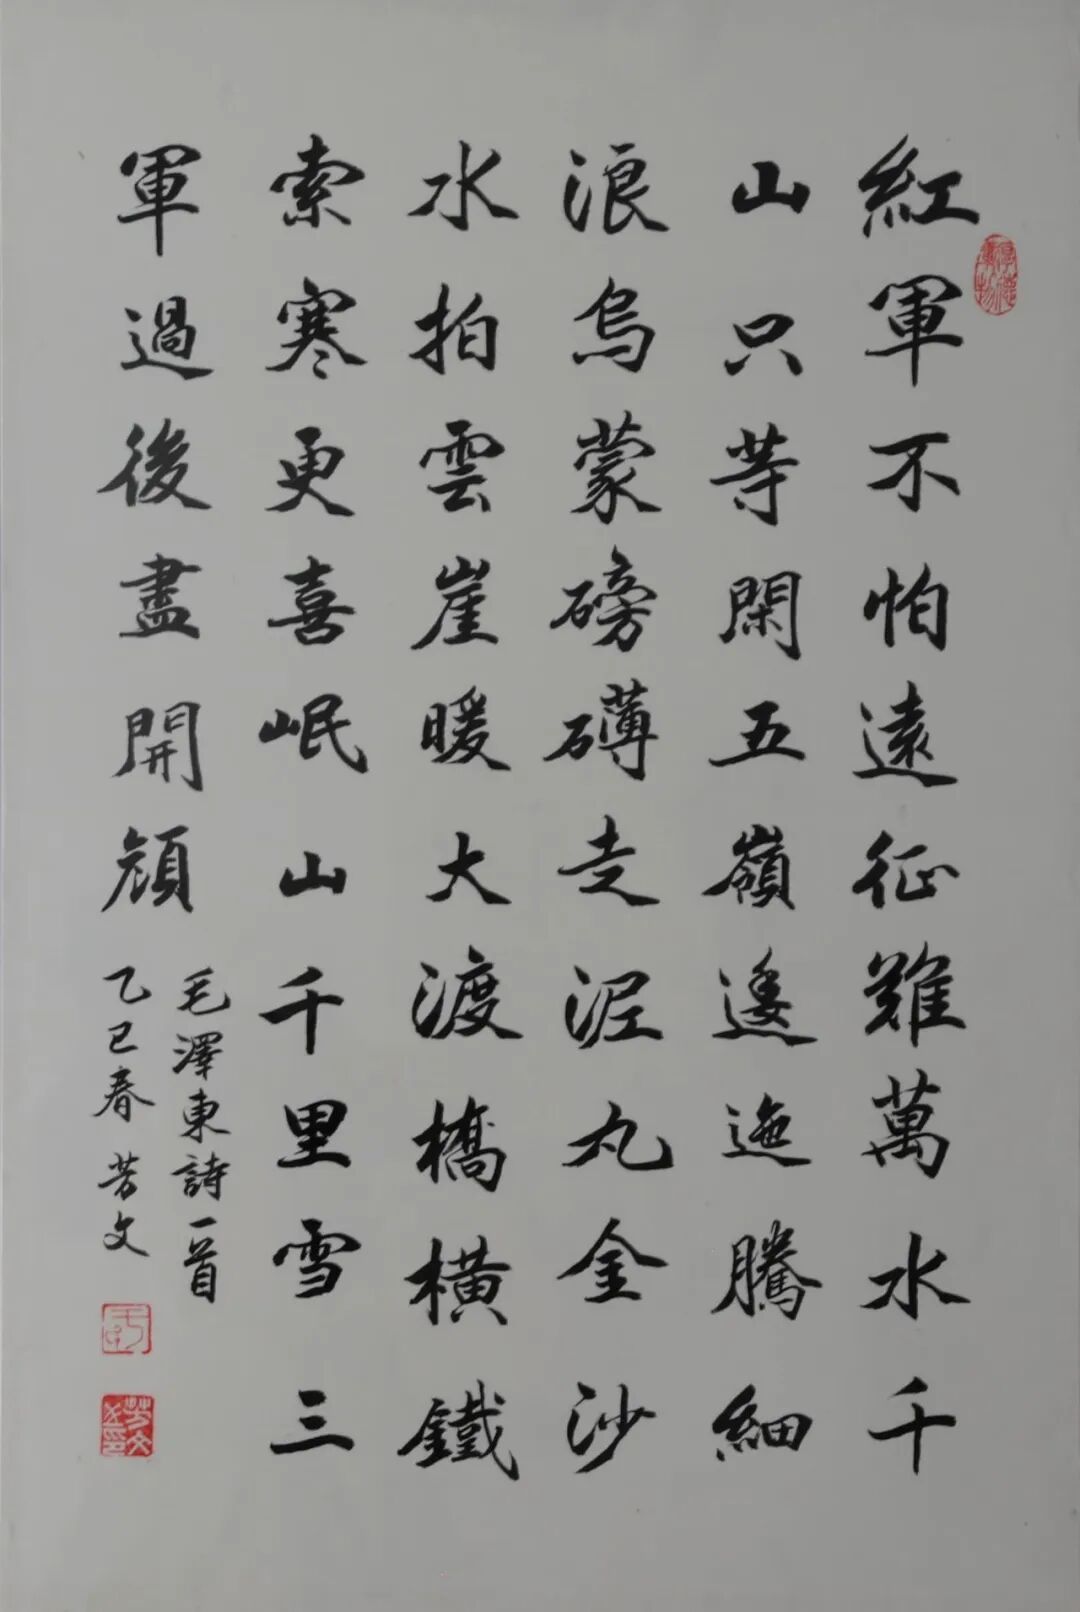 紅軍不怕遠征難萬水千
山只等閑五嶺逶迤騰細
浪烏蒙磅礴走泥丸金沙
水拍雲崖暖大渡橋橫鐵
索寒更喜岷山千里雪三
軍過後盡開顔
毛澤東詩一首
乙巳春芳文